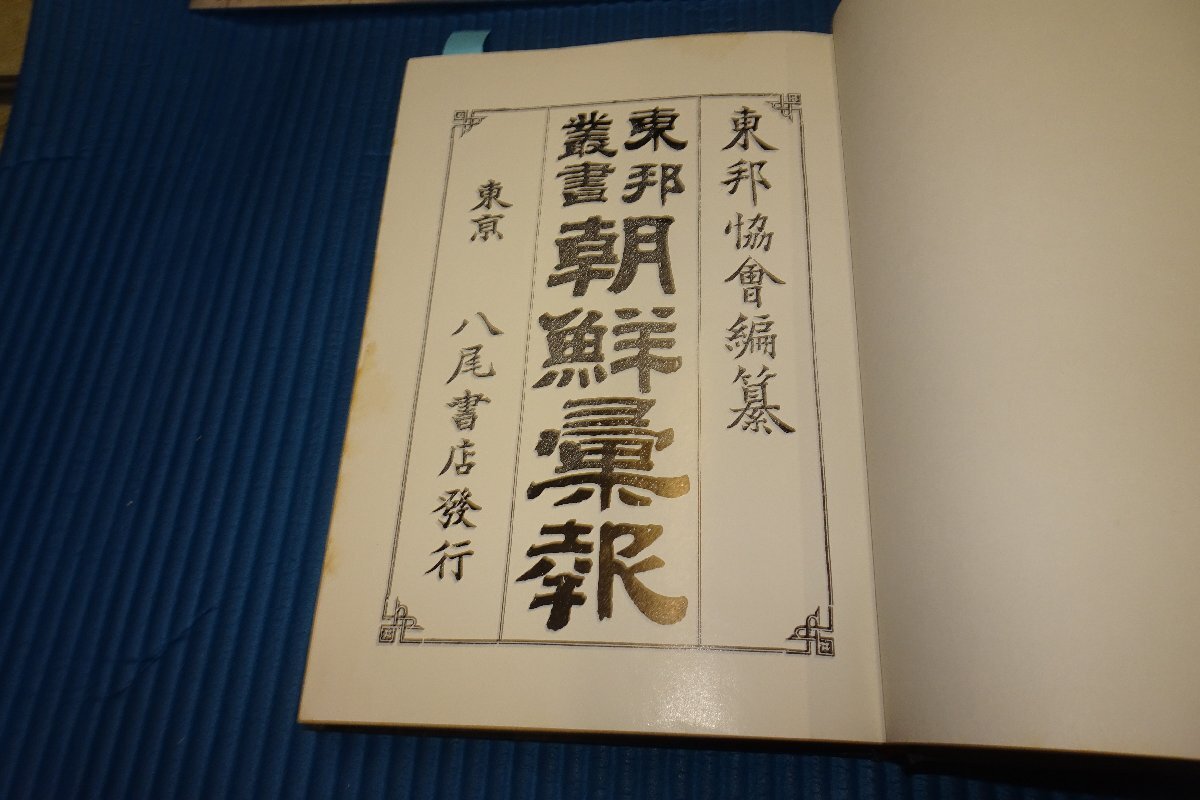 東邦協會編纂
東邦
叢書
朝鮮彙報
東京 八尾書店發行